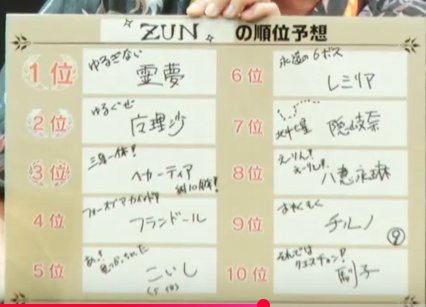 ZUN の順位予想
1位
ゆるぎない
霊夢
2位
ゆるぐぜ
魔理沙
3位
三身一体!!
ヘカーティア
4位
フォーオブアカインド
フランドール
5位
あっ!
見つかっちゃった
こいし
(514)
6位
永遠の6ボス
レミリア
7位
北斗七星
隠岐奈
8位
えーりん!!
えーりん!!
八意永琳
9位
まぬもく
チルノ
⑨
10位
それでは
クエスチョン!
馴子